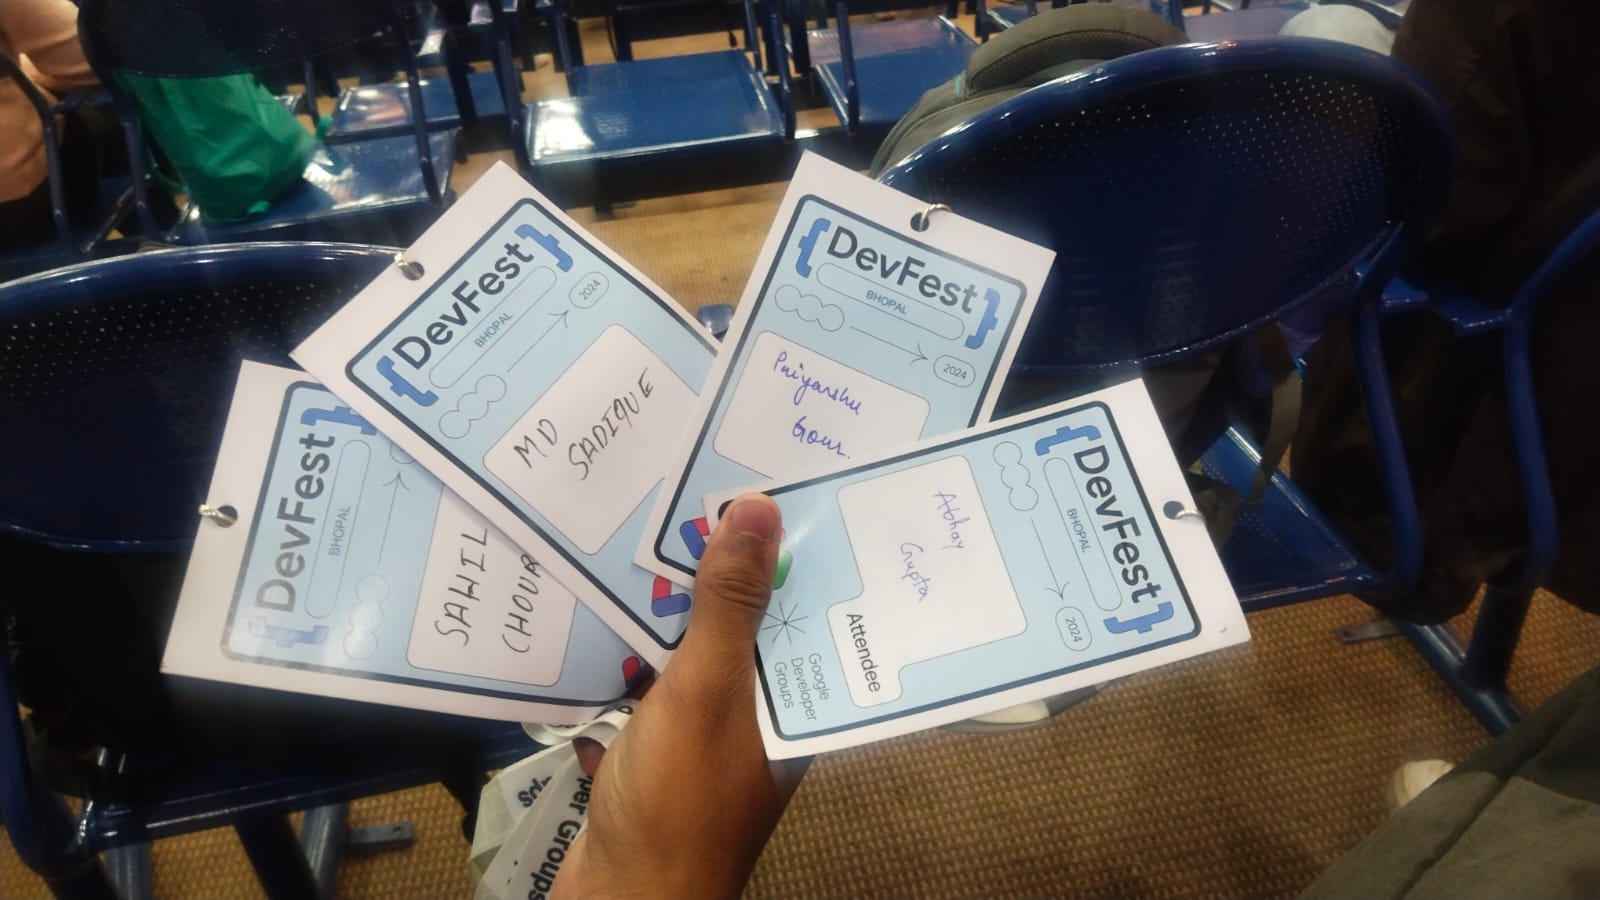 {DevFest}
BHOPAL
2024
SAHIL
CHOUR
{DevFest}
BHOPAL
2024
MD
SADIQUE
{DevFest}
BHOPAL
2024
Priyanshu
Gour.
{DevFest}
BHOPAL
2024
Abhay
Gupta
Attendee
Google
Developer
Groups
Groups